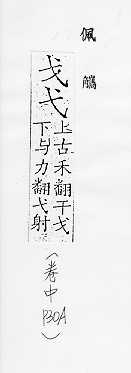 佩觿
戈弋
上古禾翻干戈
下与力翻弋射
(卷中
P30A
)